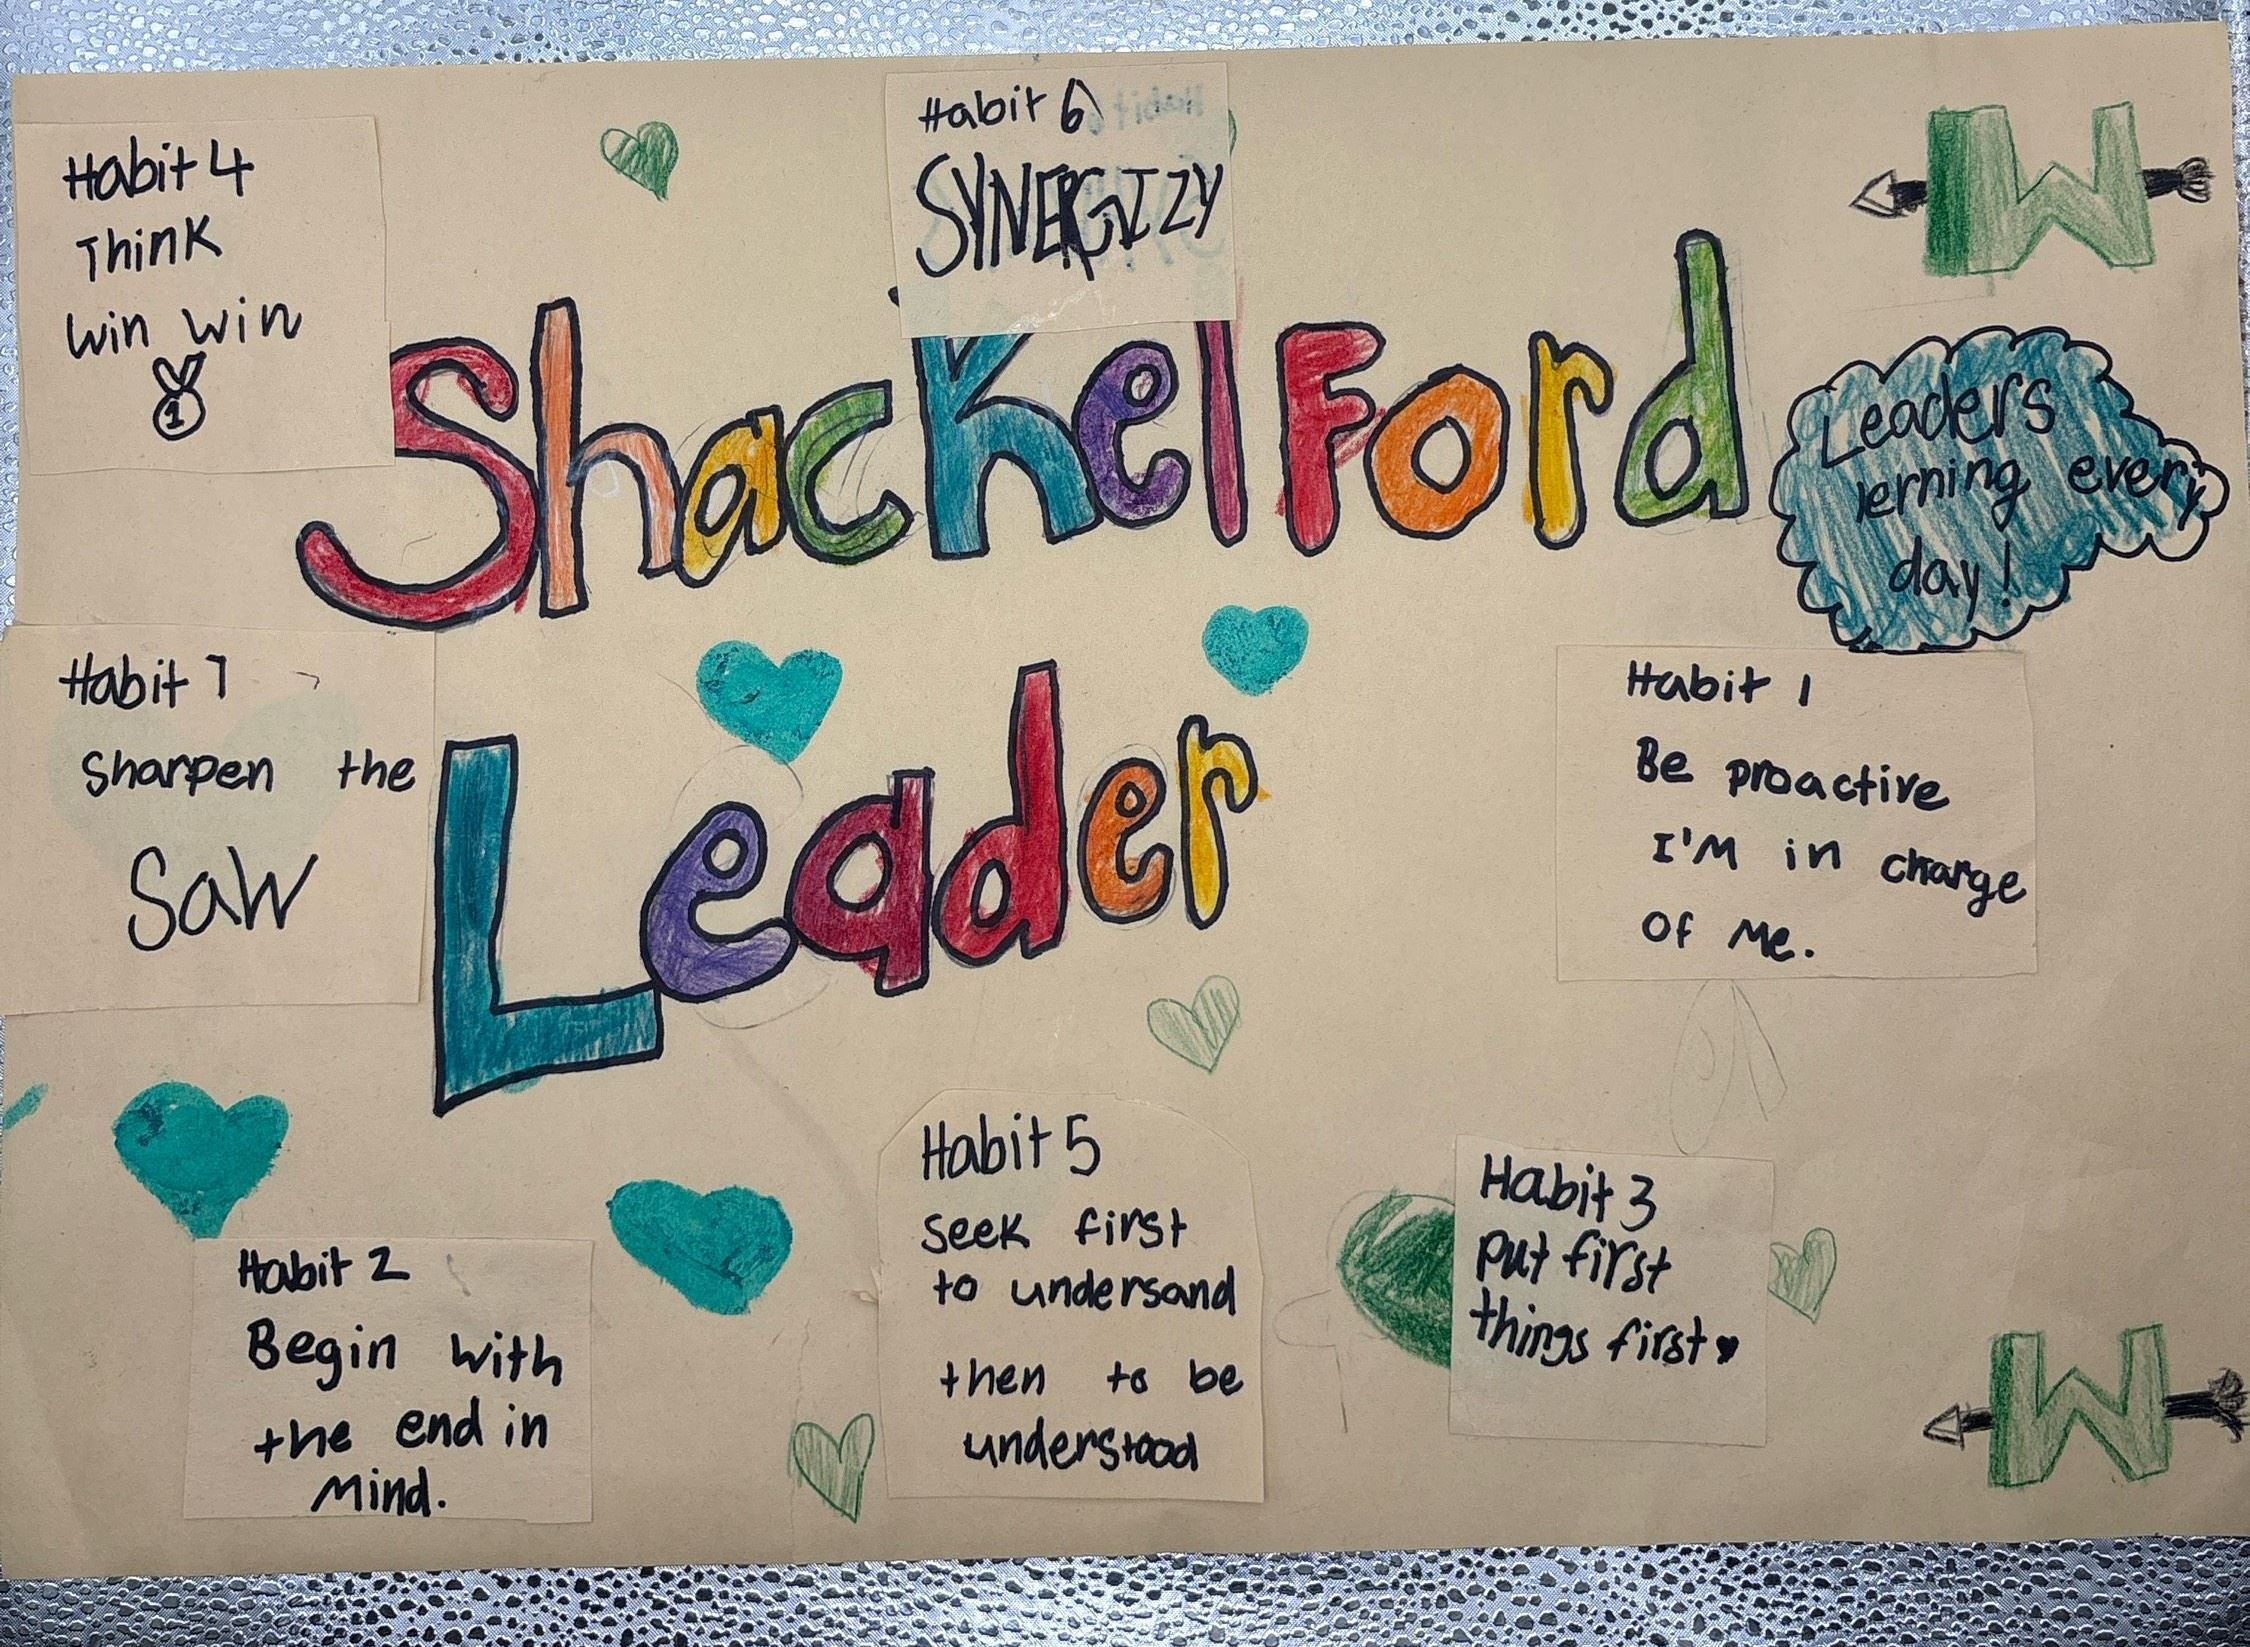 Habit 4
Think
Win Win
1
Habit 6
SYNERGIZY
W
Shackelford
Leaders
lerning every
day!
Habit 7
Sharpen the
Saw
Leader
Habit 1
Be proactive
I'M in charge
Of Me.
Habit 2
Begin with
the end in
Mind.
Habit 5
Seek first
to undersand
then to be
understood
Habit 3
Put first
things first
W